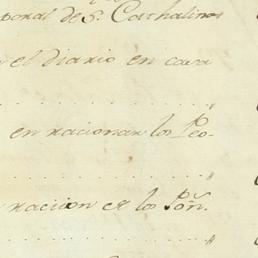 poral de Sⁿ Cathalinos
el diario en cava
en racionar los Peo-
racion et lo Poñ.